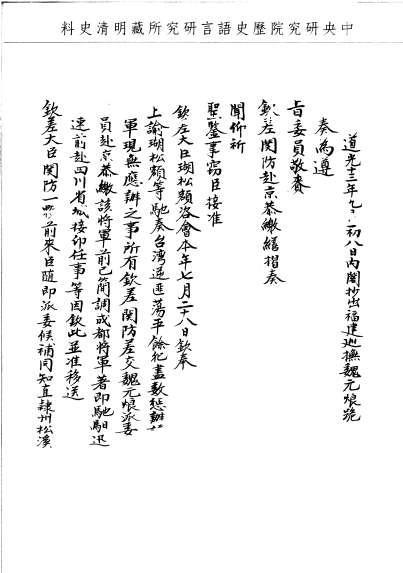 中央研究院歷史語言研究所藏明清史料
道光十三年九月初八日內閣抄出福建巡撫魏元烺跪
奏為遵
旨委員敬賫
欽差關防赴京恭繳繕摺奏
聞仰祈
聖鑒事竊臣接准
欽差大臣瑚松額咨會本年七月二十八日欽奉
上諭瑚松額等馳奏台湾逆匪蕩平餘犯盡數懲辦
軍現無應辦之事所有欽差關防着交魏元烺派委
員赴京恭繳該將軍前已簡調成都將軍著即馳馹迅
速前赴四川省城接印任事等因欽此並准移送
欽差大臣関防一顆前來臣隨即派委候補同知直隸州松溪